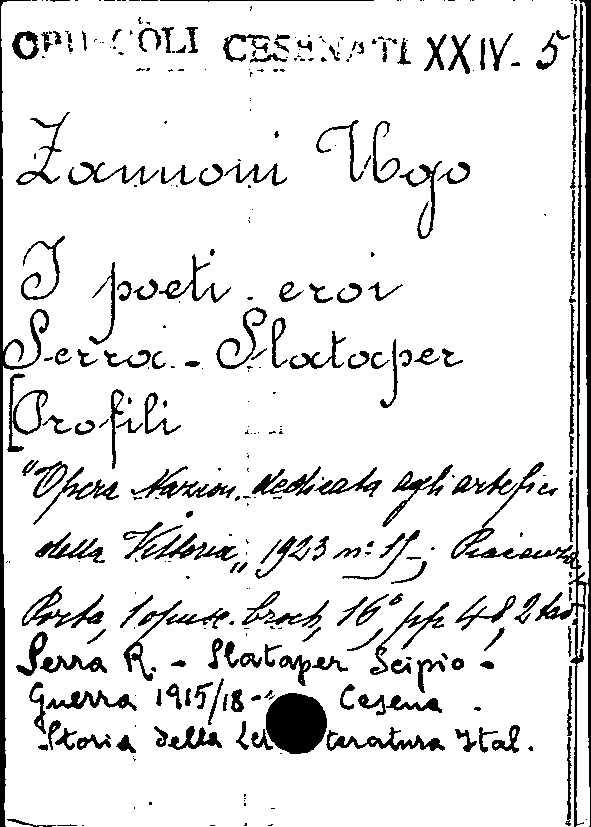 OPUSCOLI CESENATI XXIV-5
Zannoni Ugo
I poeti eroi
Serra - Slataper
[Profili
"Opera Nazion. dedicata agli artefici
della Vittoria„ 1923 n: 15; Piacenza
Porta, 1 opusc. broch, 16° pp 48, 2 tav.
Serra R. - Slataper Scipio -
Guerra 1915/18 - Cesena .
Storia della Letteratura Ital.